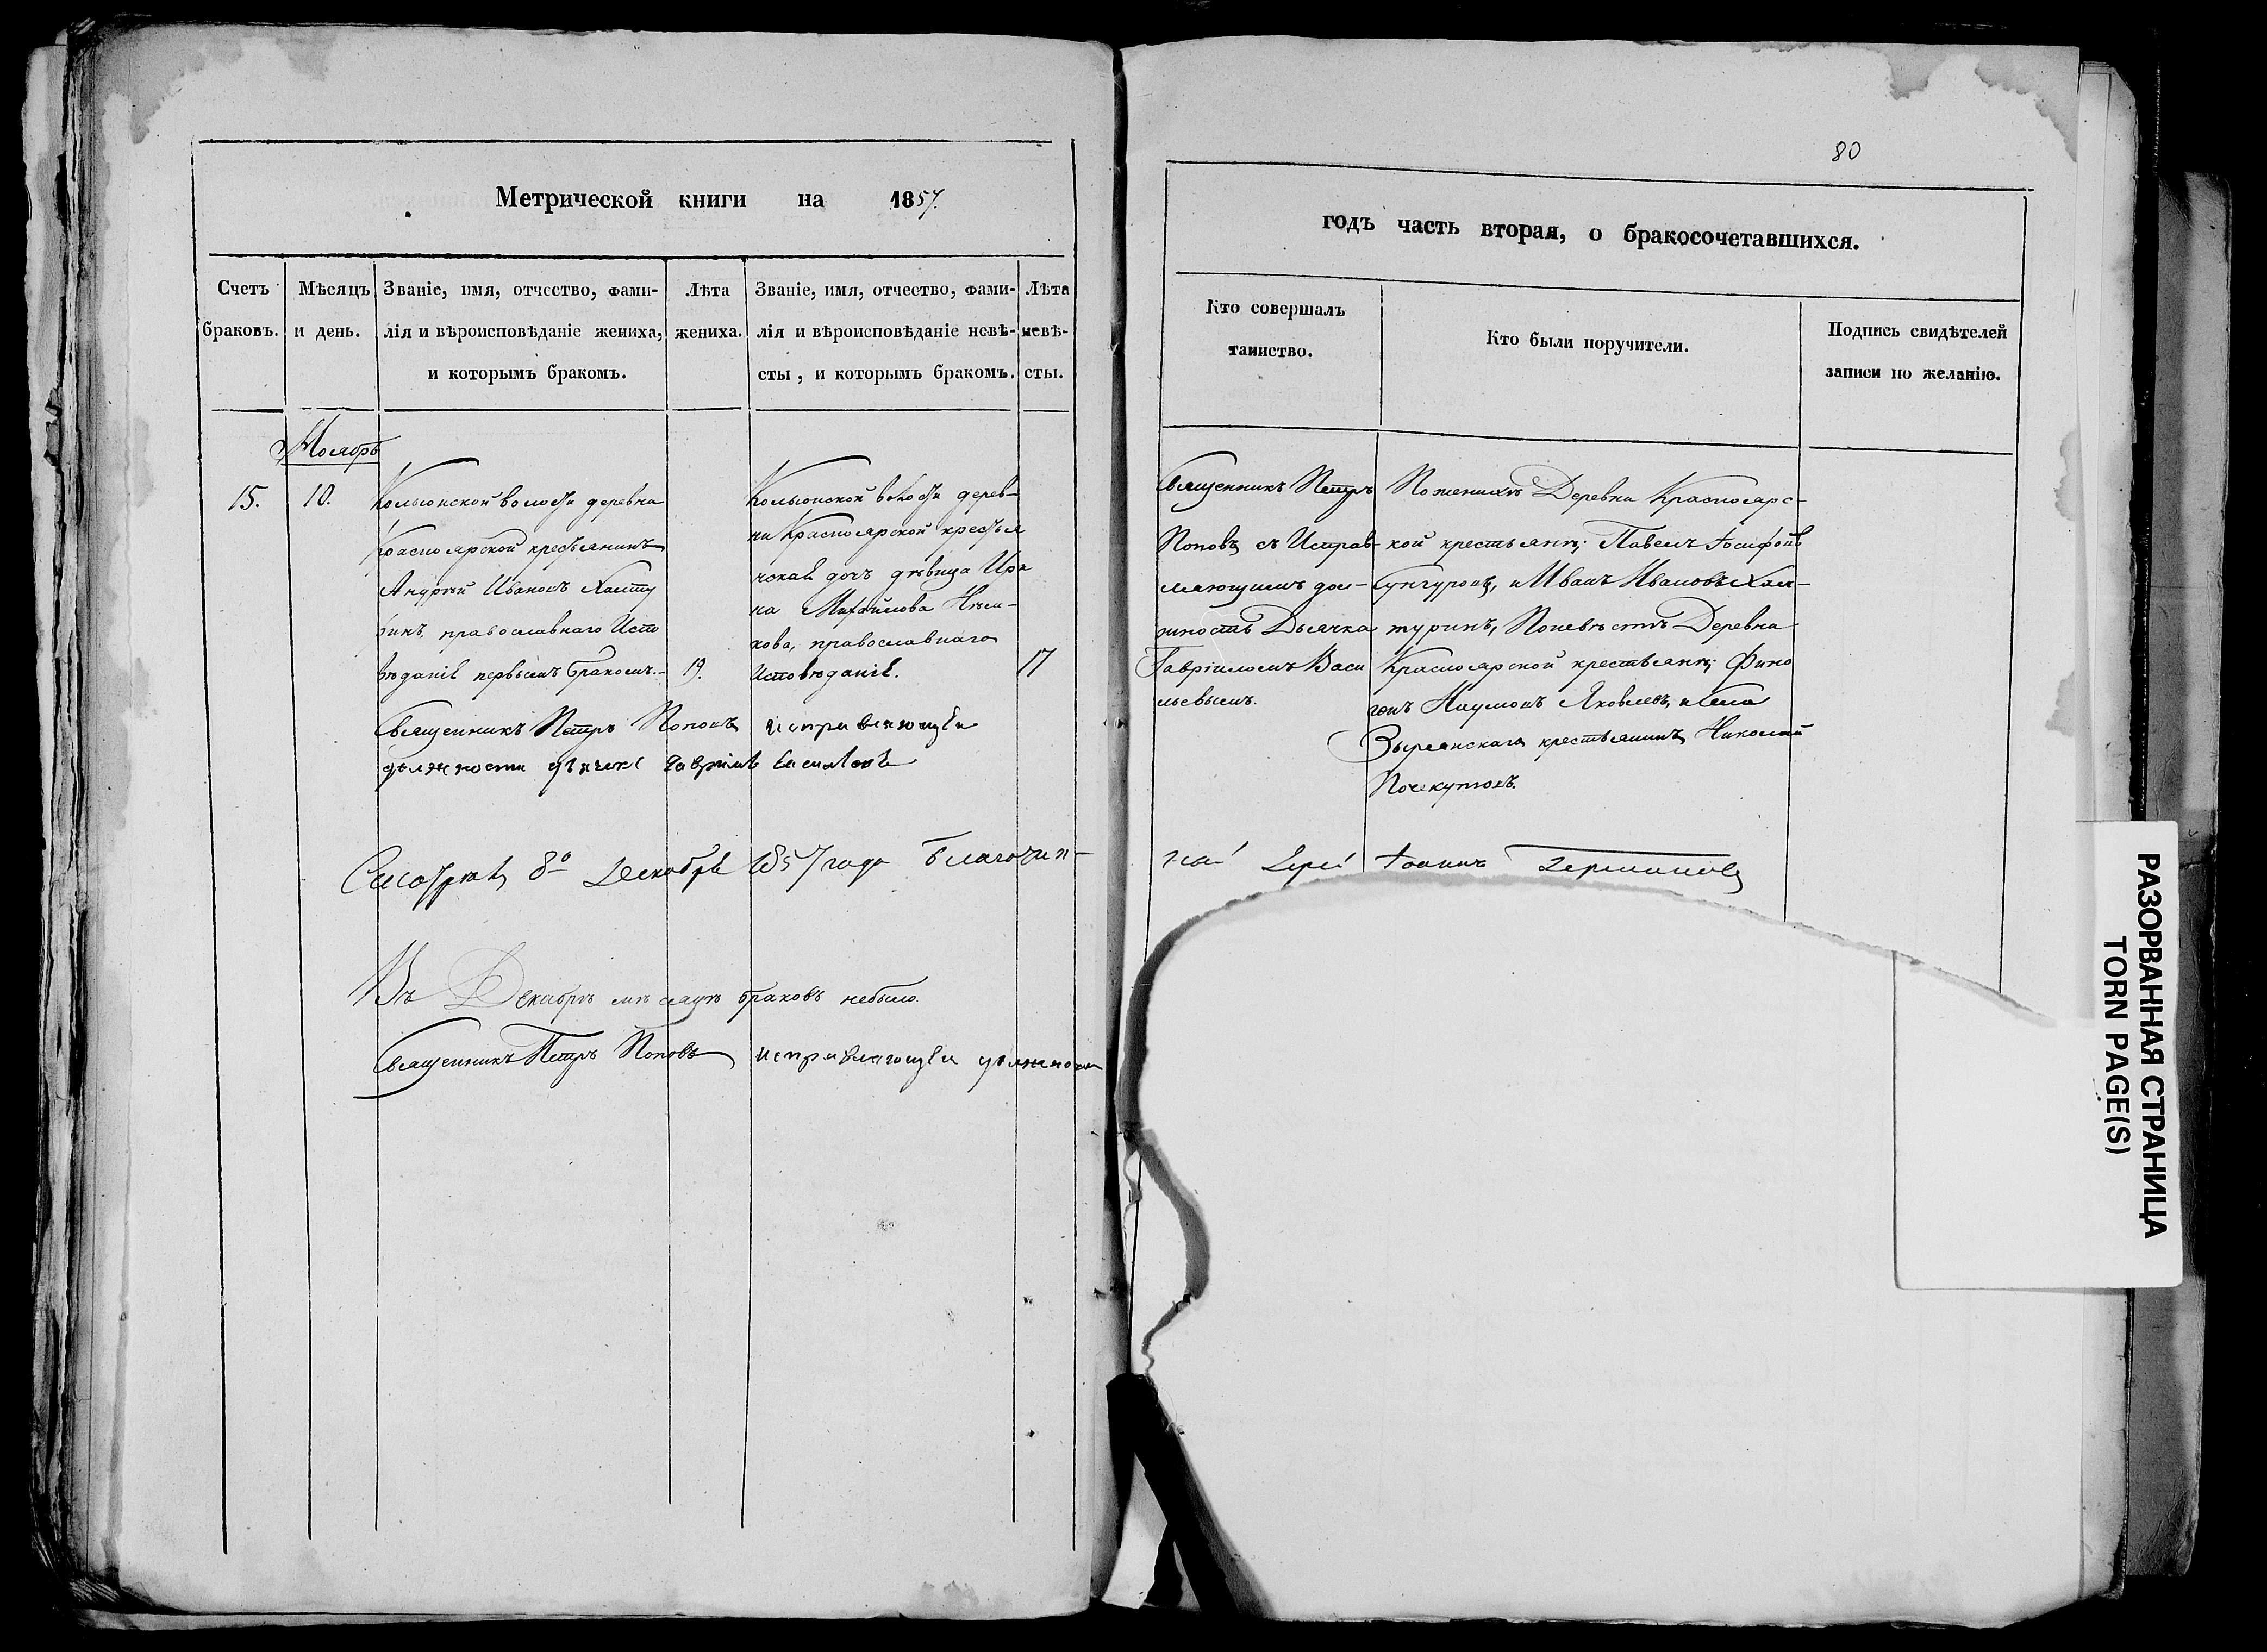 80
Метрической книги на 1857.
годъ часть вторая, о бракосочетавшихся.
Счетъ браковъ.
Мѣсяцъ и день.
Званіе, имя, отчество, фами-
лія и вѣроисповѣданіе жениха,
и которымъ бракомъ.
Лѣта жениха.
Званіе, имя, отчество, фами-
лія и вѣроисповѣданіе невѣ-
сты, и которымъ бракомъ.
Лѣта невѣ-
сты.
Кто совершалъ
таинство.
Кто были поручители.
Подпись свидѣтелей
записи по желанію.
Ноябрь
15.
10.
Колыонской волости деревна
Красноярской крестьянинъ
Андрей Ивановъ Халту
ринъ, православнаго Испо
вѣданіе первымъ бракомъ.-
19.
Колыонской волости дерев-
ни Красноярской крестья
нская дочь дѣвица Ири
на Михайлова
кова, православнаго
Исповѣданіе.
17
Священникъ Петръ
Поповъ съ Исправ-
ляющимъ дол-
жность Дьячка
Гавріиломъ Васи
льевымъ.
По женихѣ Деревни Красноярс-
кой крестьяни; Павелъ Іосифовъ
Сунгуровъ, и Иванъ Ивановъ Хал-
туринъ, По невѣстѣ Деревни
Красноярской крестьяни;
Наумовъ Яковлевъ, и Села
Зырянскаго крестьянинъ Николай
Почекутовъ.
Священникъ Петръ Поповъ исправляющи
должности дьячка Гаврилъ Василевъ
Смотрѣлъ 8о Декабря 1857 года благочин-
ный Іерей Іоаннъ
Въ Декабрѣ мѣсяцѣ браковъ небыло.
Священникъ Петръ Поповъ исправляющи должност
РАЗОРВАННАЯ СТРАНИЦА
TORN PAGE(S)